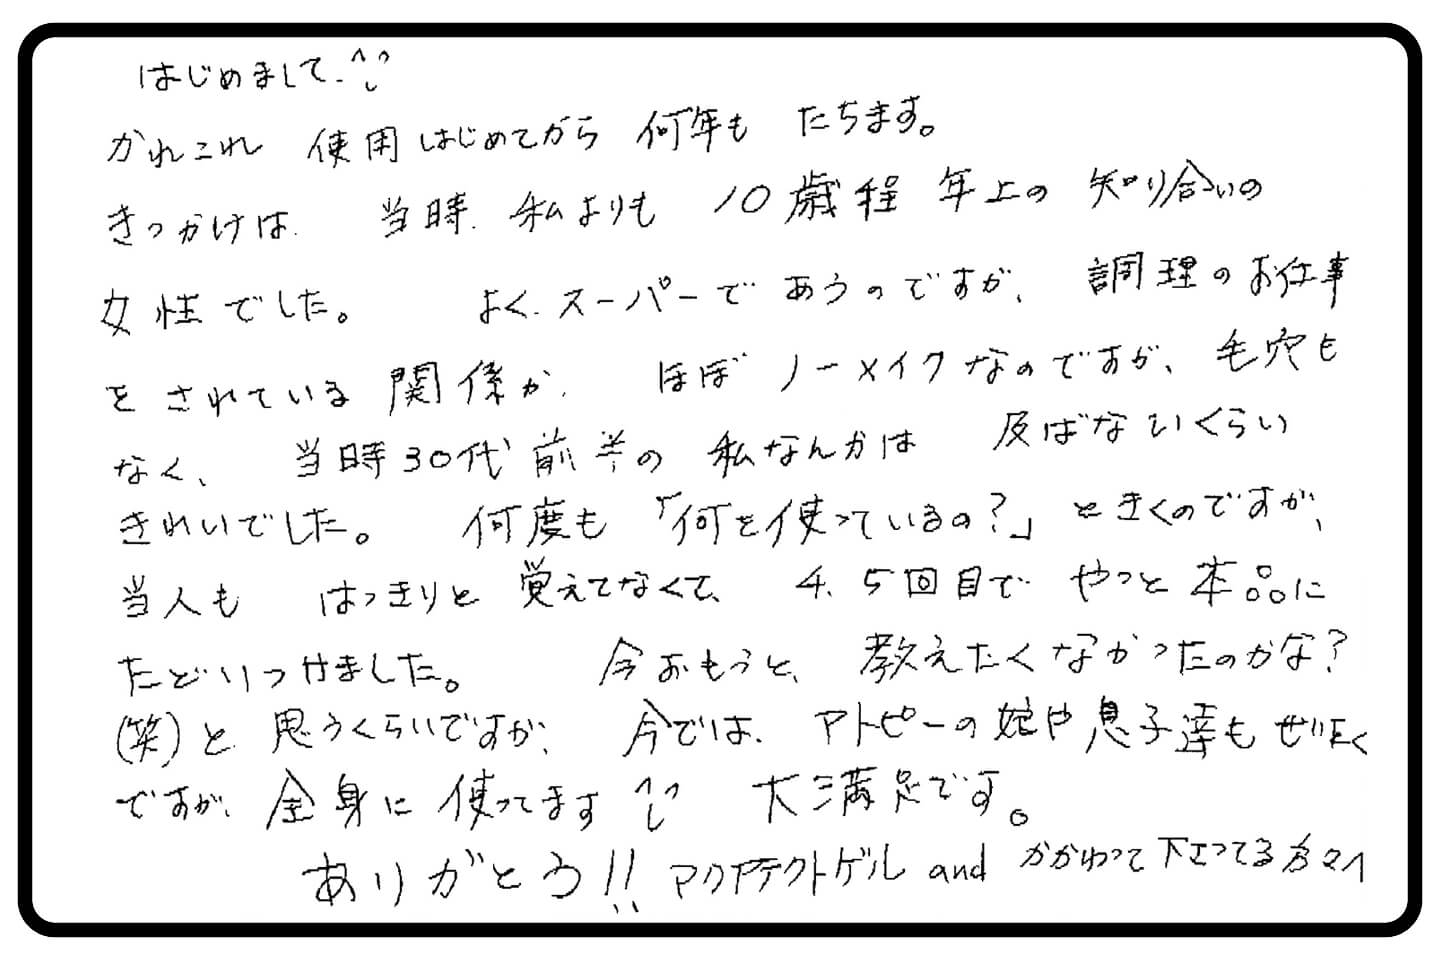 はじめまして.^^
かれこれ 使用はじめてから 何年も たちます。
きっかけは. 当時. 私よりも 10歳程 年上の 知り合いの
女性でした。 よく.スーパーで あうのですが、 調理のお仕事
をされている 関係か. ほぼ ノーメイクなのですが、毛穴も
なく、 当時30代前半の 私なんかは 及ばないくらい
きれいでした。 何度も「何を使っているの?」ときくのですが、
当人も はっきりと 覚えてなくて、 4.5回目で やっと 本品に
たどりつけました。 今おもうと、教えたくなかったのかな?
(笑)と 思うくらいですが、 今では. アトピーの娘や息子達も ぜいたく
ですが、全身に 使ってます^^ 大満足です。
ありがとう!! アクアテクトゲル and かかわって下さってる方々へ